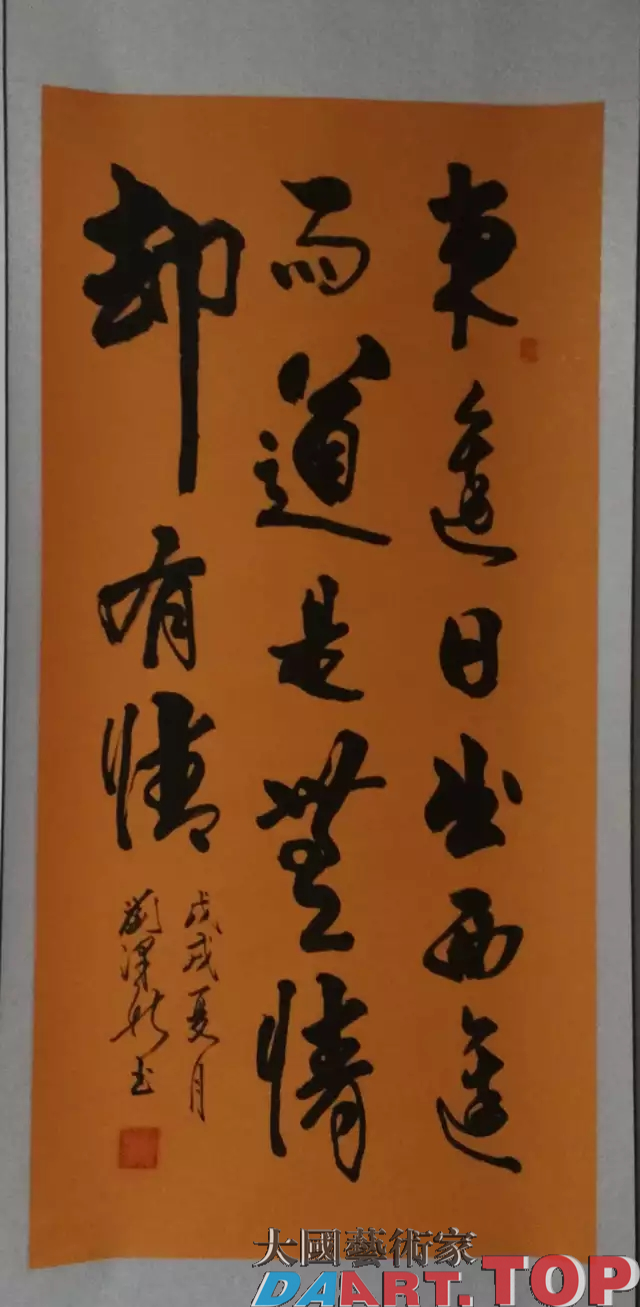 東邊日出西邊
雨道是無情
却有情
戊戌夏月
劉澤新书
大國藝術家
DAART.TOP